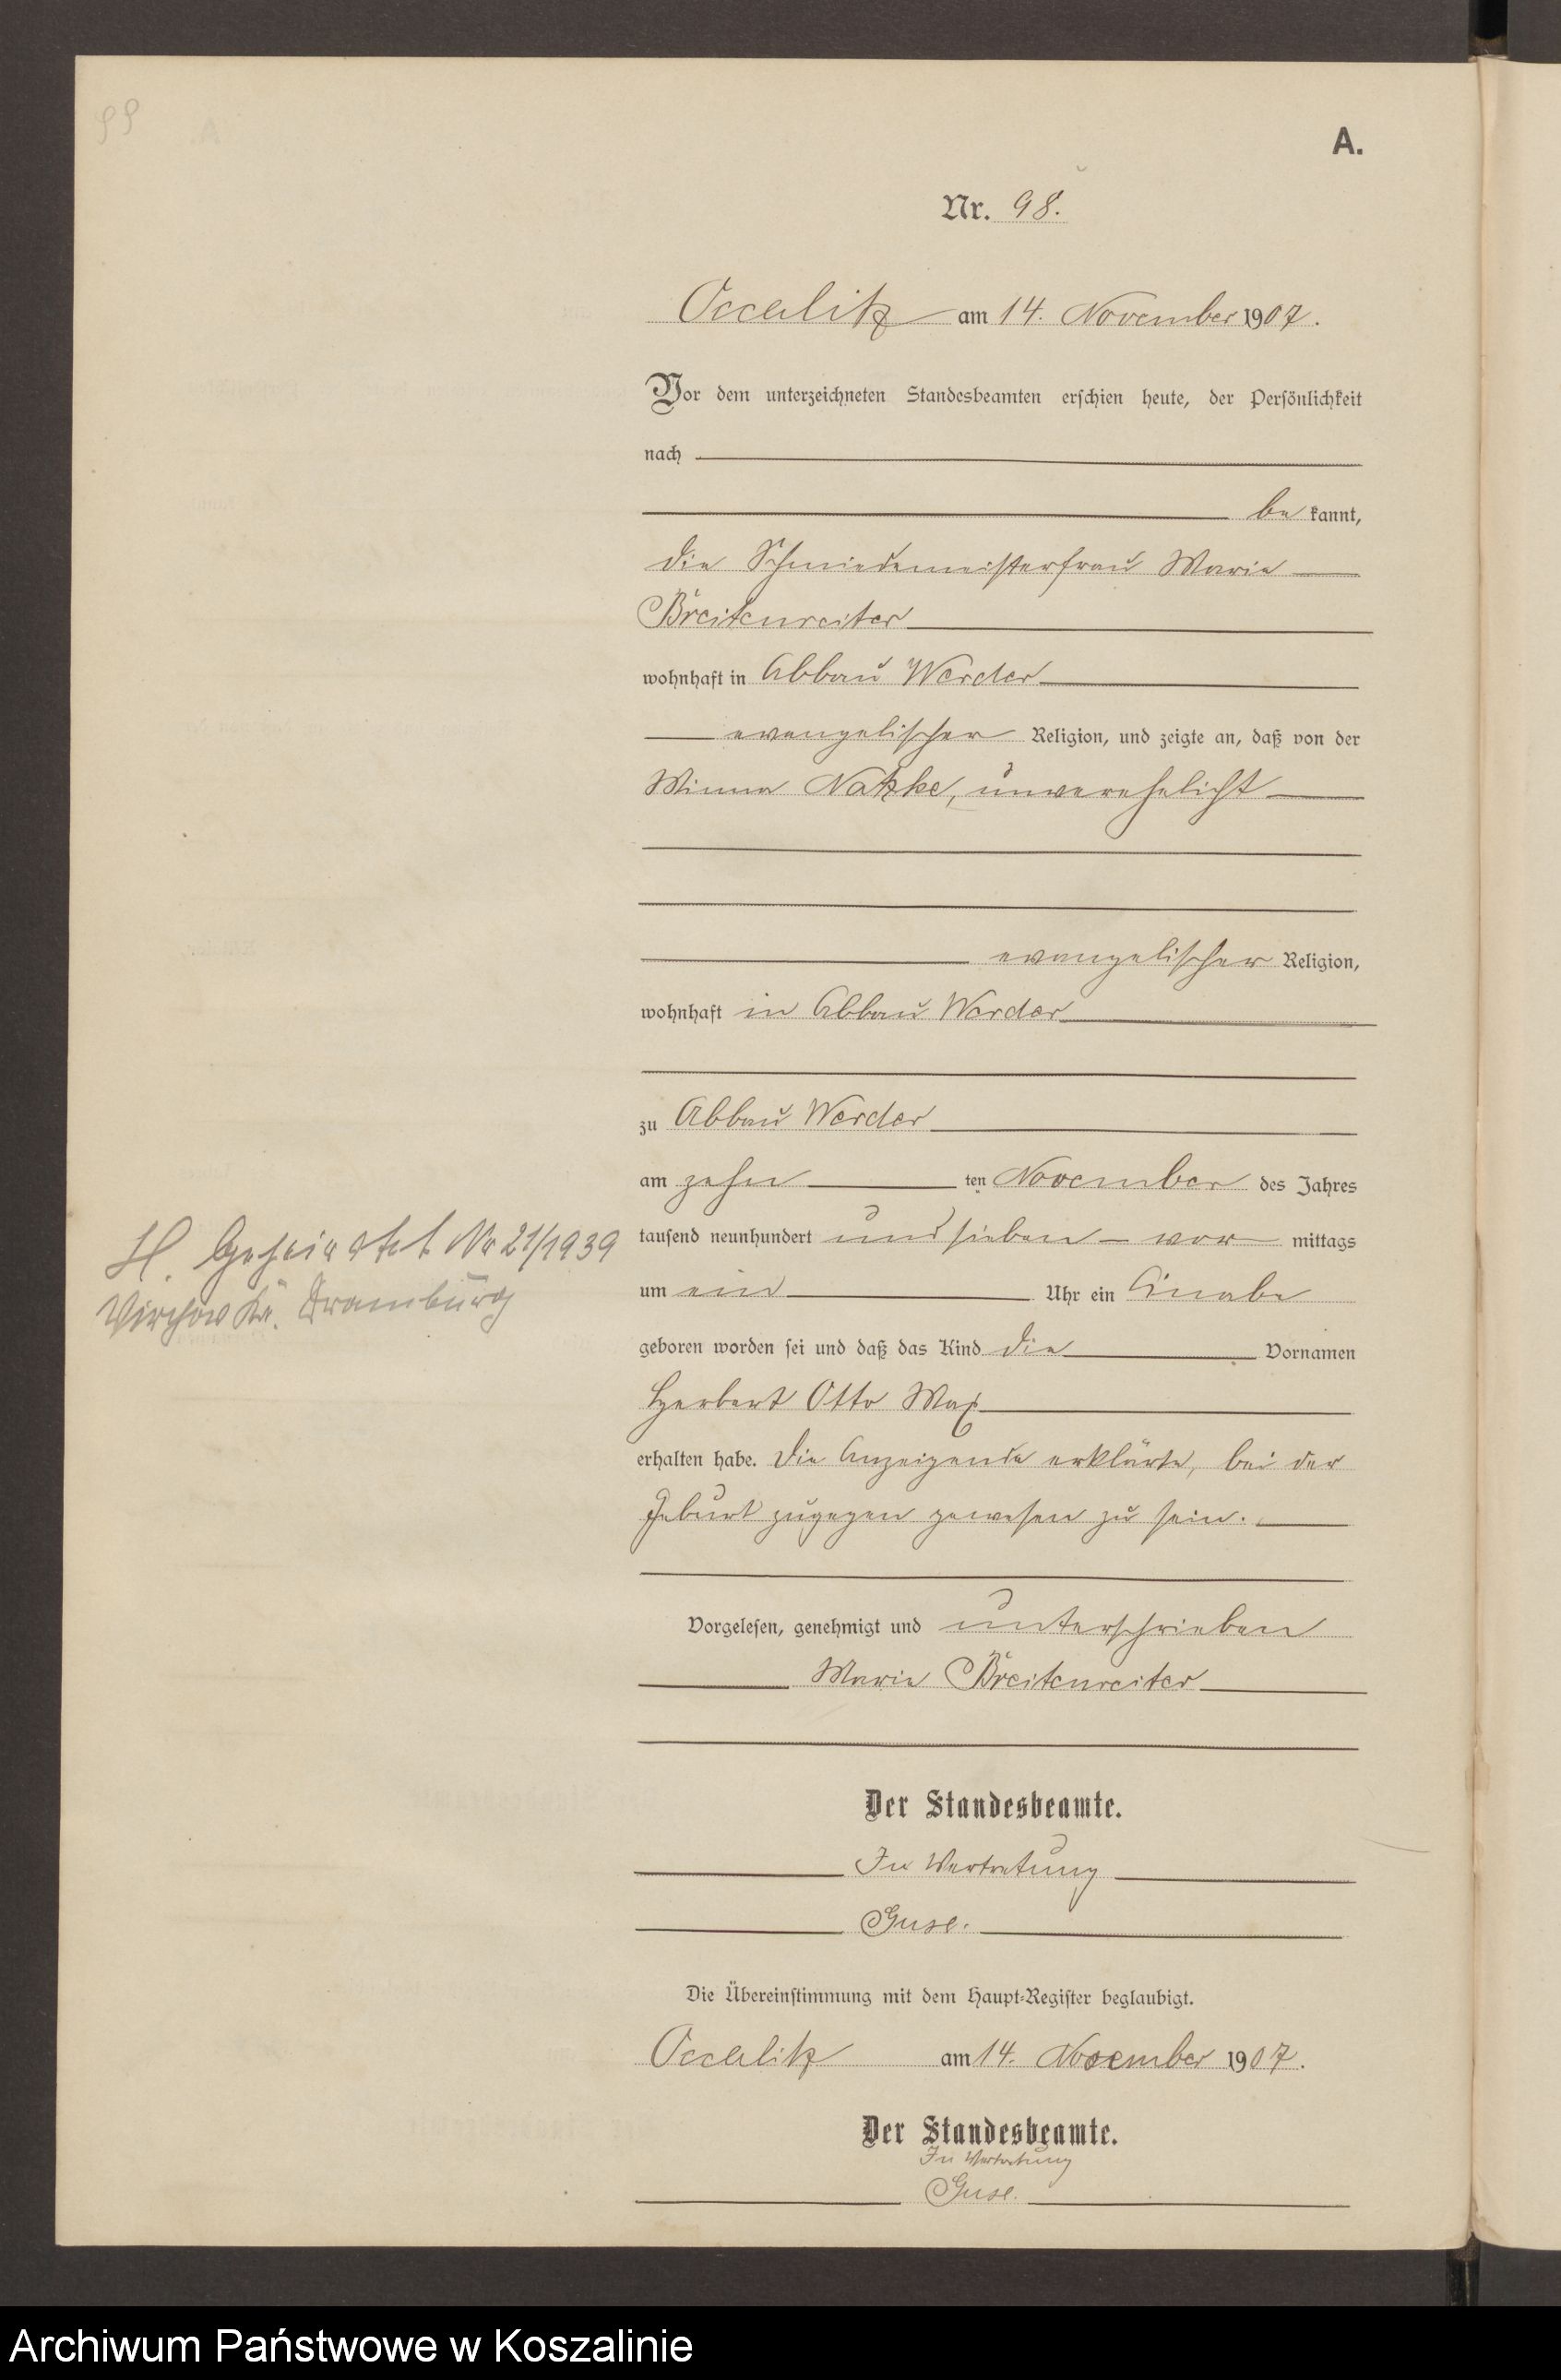 99
A.
Nr. 98.
Occalitz am 14. November 1907.
Vor dem unterzeichneten Standesbeamten erschien heute, der Persönlichkeit
nach
be kannt,
die Schmiedemeisterfrau Marie
Breitenreiter
wohnhaft in Abbau Werder
evangelischer Religion, und zeigte an, daß von der
Minna Natzke, unverehelicht
evangelischer Religion,
wohnhaft in Abbau Werder
zu Abbau Werder
am zehn ten November des Jahres
tausend neunhundert und sieben vor mittags
H. Geheiratet Nr 21/1939
um ein Uhr ein Knabe
Virchow Kr. Dramburg
geboren worden sei und daß das Kind die Vornamen
Herbert Otto Max
erhalten habe. Die Anzeigende erklärte, bei der
Geburt zugegen gewesen zu sein.
Vorgelesen, genehmigt und unterschrieben
Marie Breitenreiter
Der Standesbeamte.
In Vertretung
Guse.
Die Übereinstimmung mit dem Haupt-Register beglaubigt.
Occalitz am 14. November 1907.
Der Standesbeamte.
In Vertretung
Guse.
Archiwum Państwowe w Koszalinie